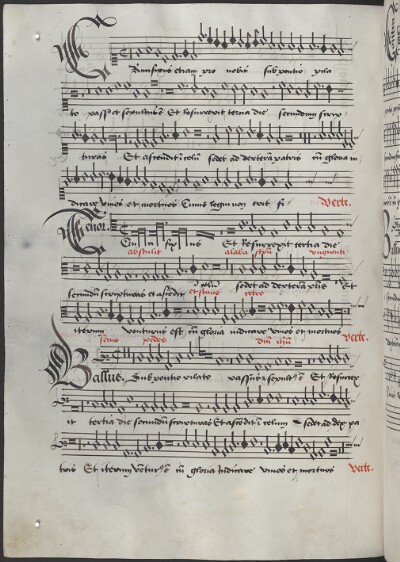 Crucifixus etiam pro nobis sub pontio pila
to passus et sepultus est Et Resurrexit tertia die secundum scrip
turas Et ascendit in celum sedet ad dexteram patris cum gloria iu
dicare vivos et mortuos Cuius regni non erit fi Verte.
Tenor. Crucifixus Et Resurrexit tertia die
abstulit
secundum scripturas et ascendit in celum sedet ad dexteram patris Et
et stans retro
iterum venturus est cum gloria iudicare vivos et mortuos Verte.
secus pedes
Bassus. Sub pontio pilato passus et sepultus est Et Resurrex
it tertia die secundum scripturas Et ascendit in celum sedet ad dex pa
tris Et iterum venturus est cum gloria Iudicare vivos et mortuos Verte.